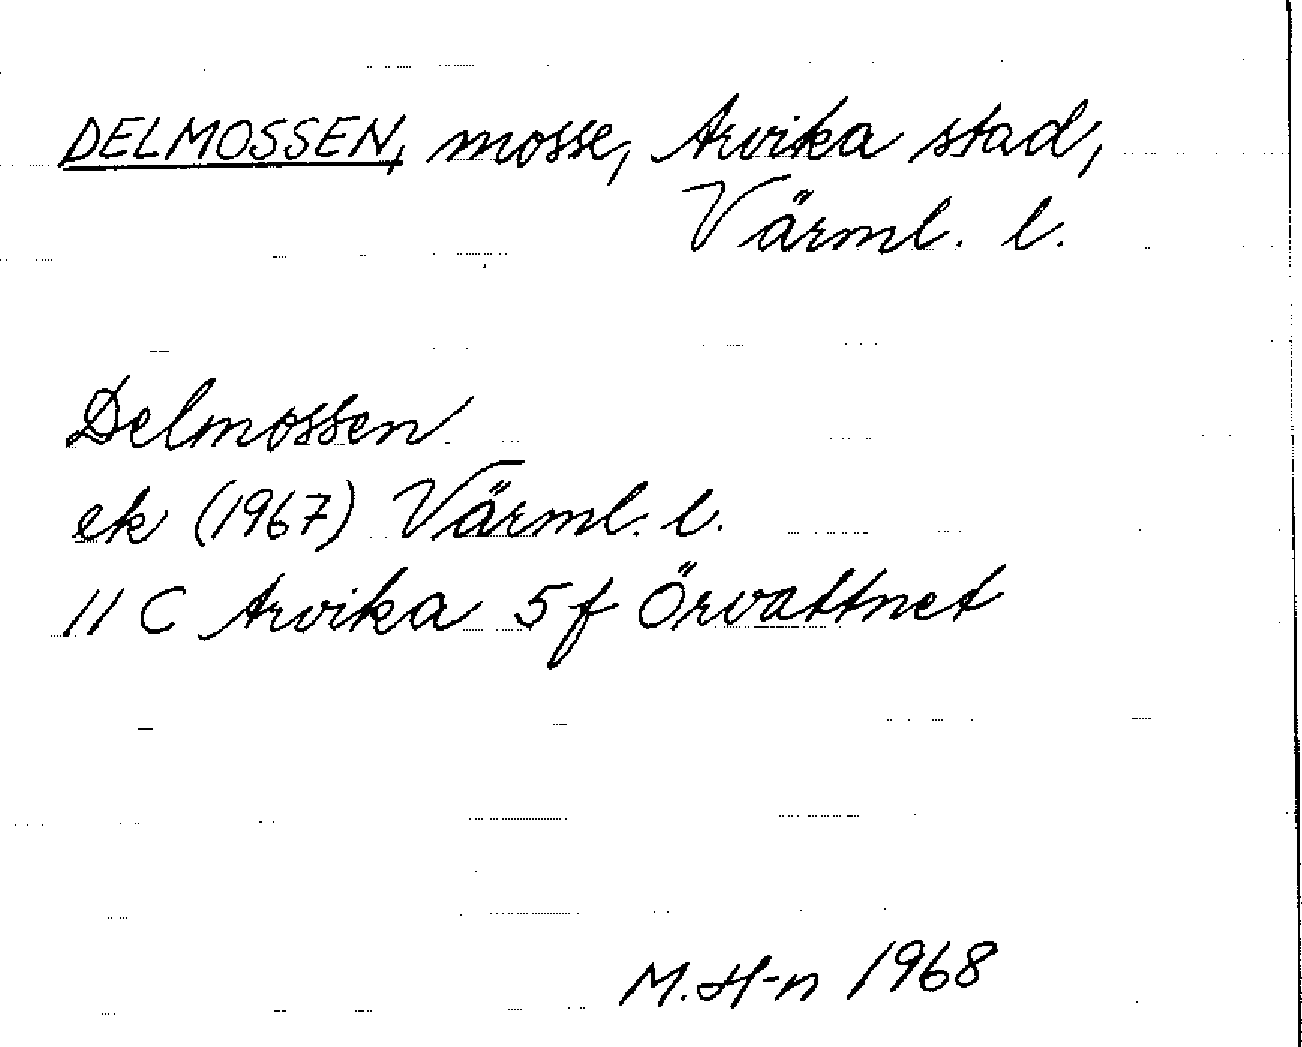 DELMOSSEN, mosse, Arvika stad,
Värml. l.
Delmossen
ek (1967) Värml. l.
11 C Arvika 5 f Örvattnet
M. H-n 1968